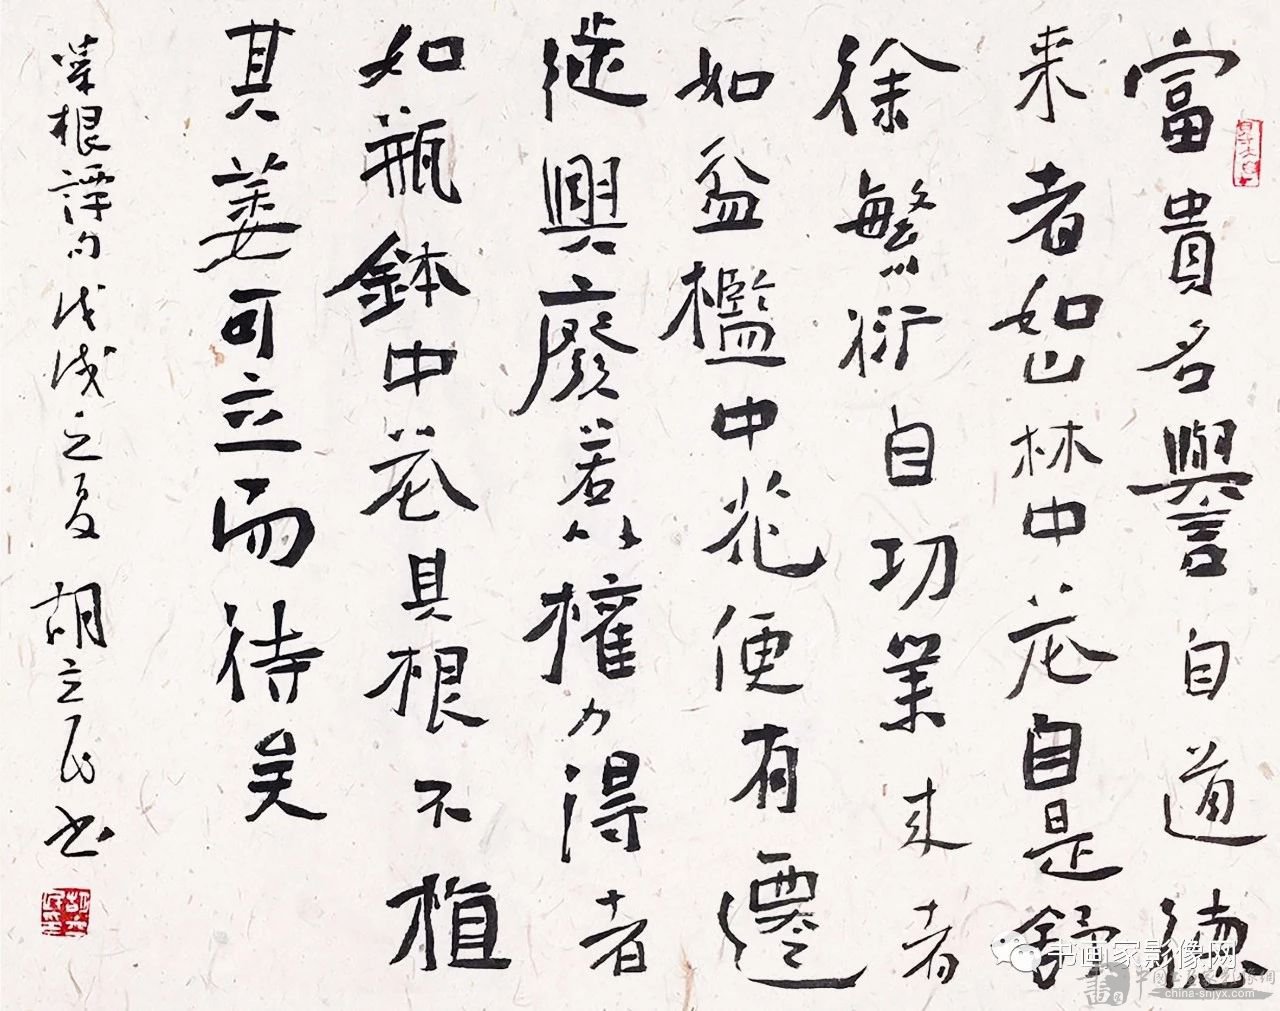 富貴名譽自道德
来者如山林中花自是舒
徐繁衍自功業来者
如盆檻中花便有遷
徙興廢若以權力得者
如瓶鉢中花其根不植
其萎可立而待矣
菜根譚句戊戌之夏
胡立民书
书画家影像网
china-snjyx.com